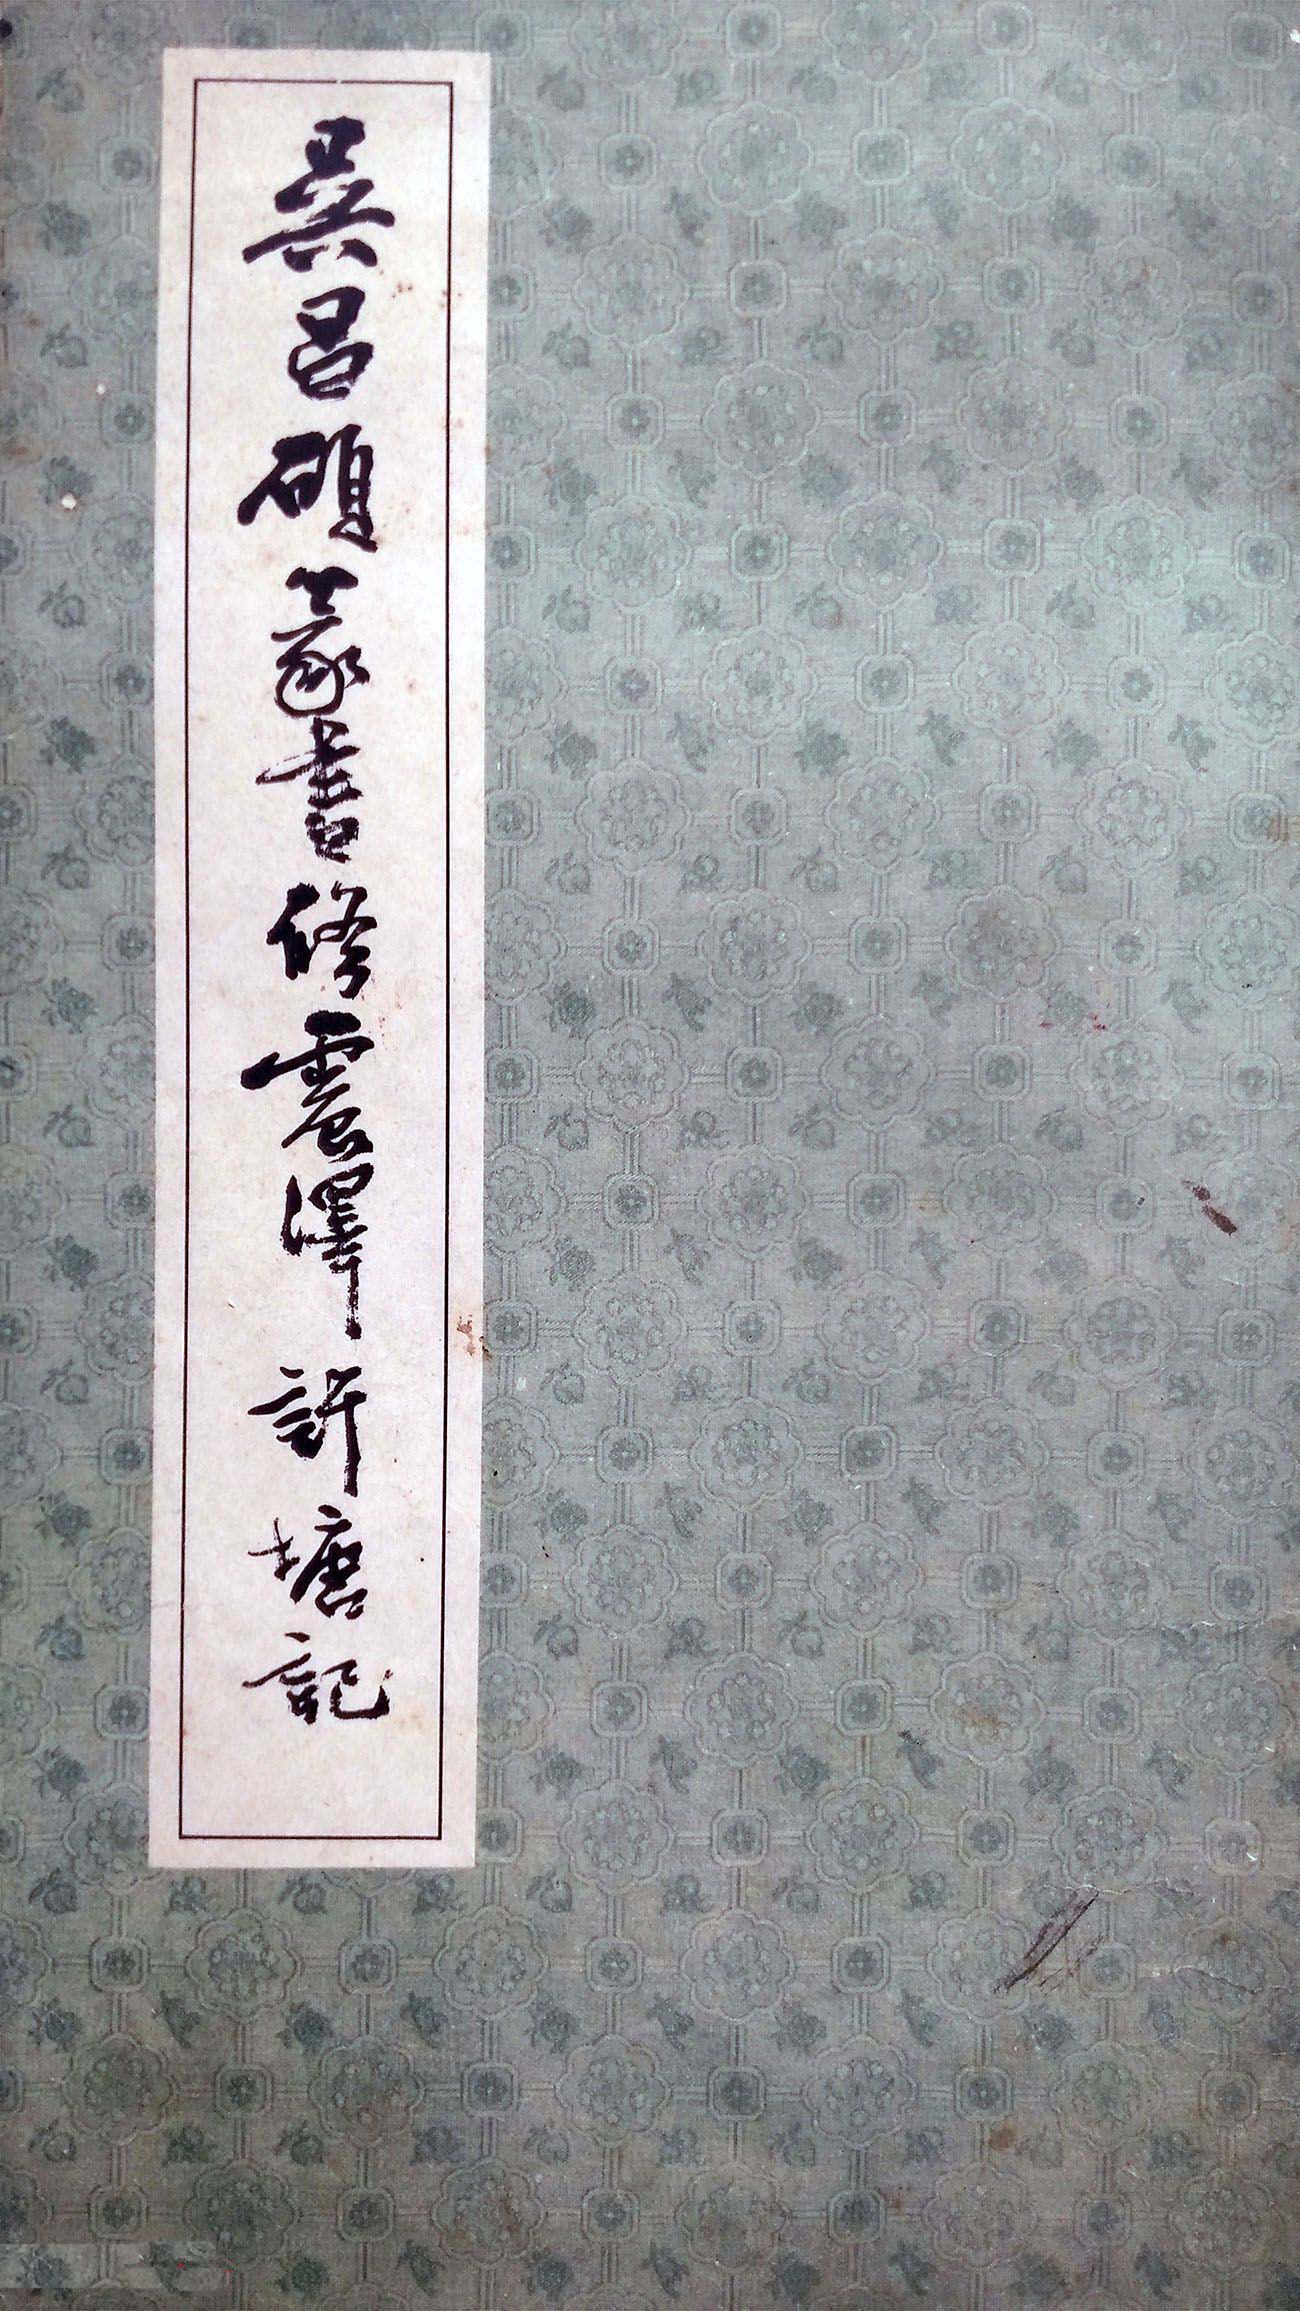 吴昌碩篆書修震澤許塘記